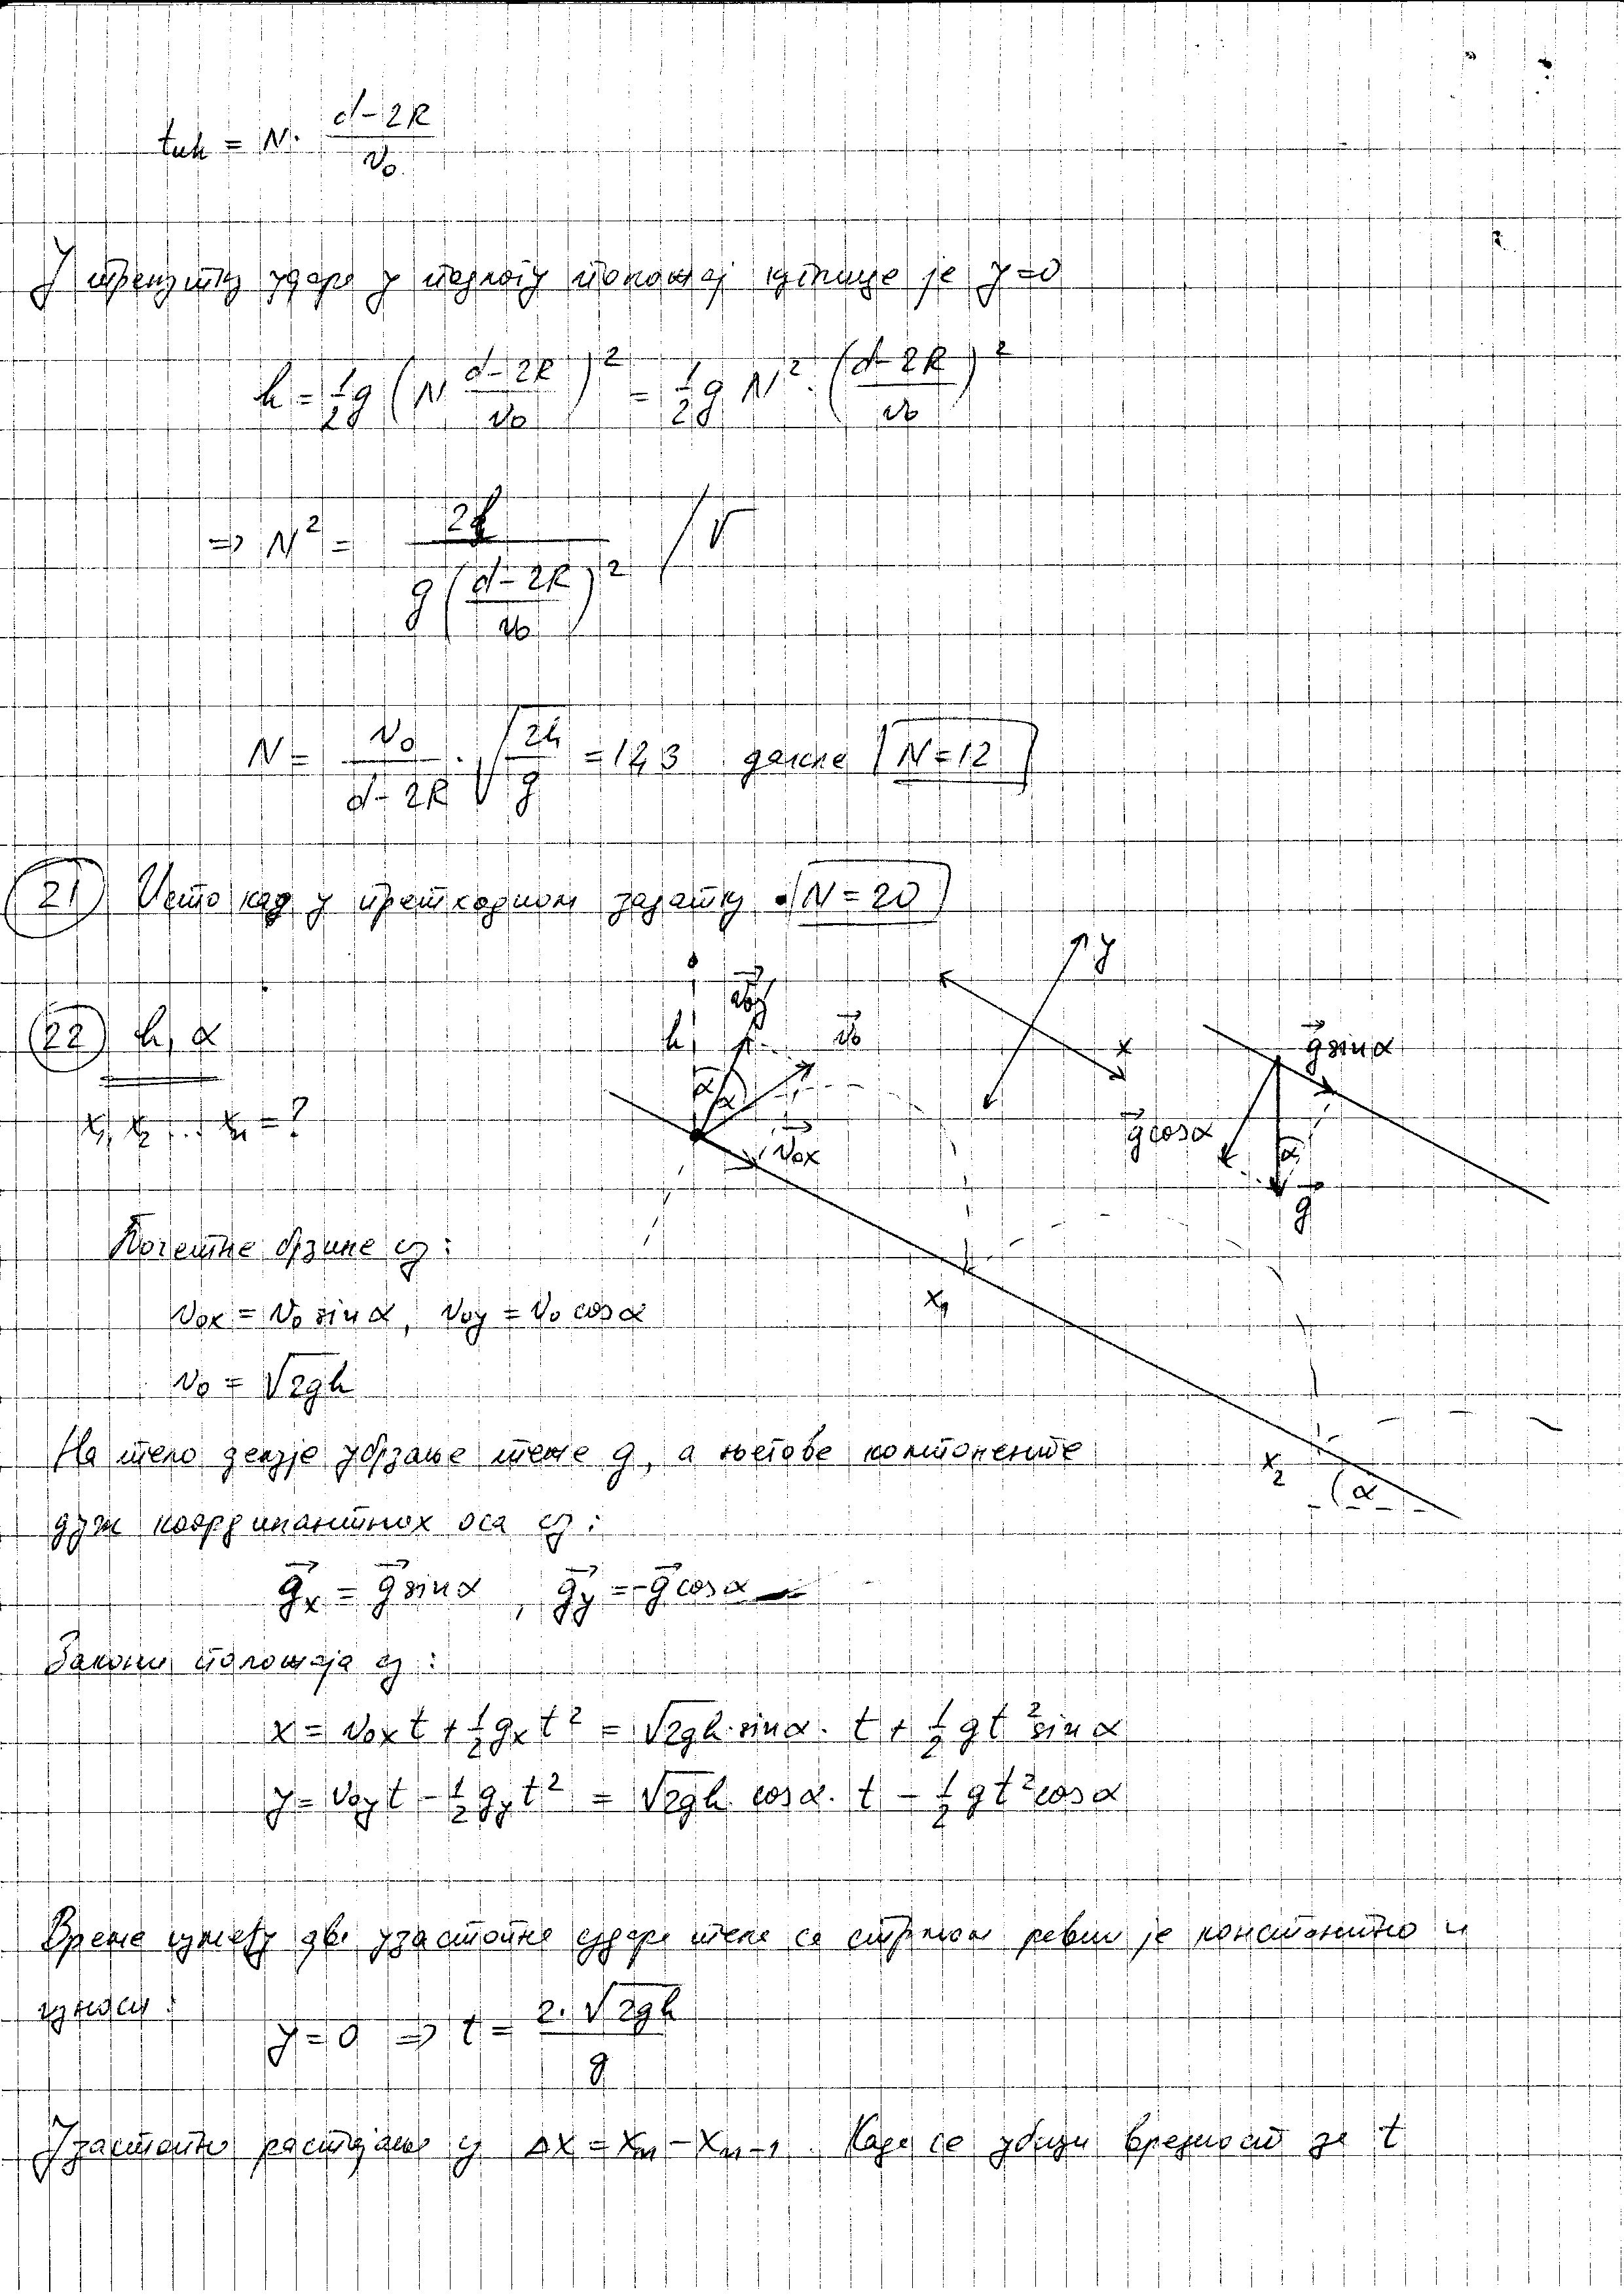 tuk = N · (d-2R)/v₀
У тренутку удара у подлогу положај куглице је y=0
h = 1/2 g (N (d-2R)/v₀)² = 1/2 g N² · ((d-2R)/v₀)²
=> N² = 2h / g((d-2R)/v₀)² /√
N = v₀/(d-2R) · √(2h/g) = 12,3 дакле N=12
21 Исто кад у претходном задатку · N = 20
22 h, α
x₁, x₂ ... xₙ = ?
h
v⃗₀y
v⃗₀
α
α
v⃗₀x
y
x
g⃗ sinα
g⃗ cosα
α
g⃗
x₁
x₂
α
Почетне брзине су:
v₀x = v₀ sinα, v₀y = v₀ cosα
v₀ = √2gh
На тело делује убрзање теже g, а његове компоненте
дуж координантних оса су:
g⃗x = g⃗ sinα , g⃗y = -g⃗ cosα
Закони положаја су:
x = v₀x t + 1/2 gx t² = √2gh · sinα · t + 1/2 gt² sinα
y = v₀y t - 1/2 gy t² = √2gh · cosα · t - 1/2 gt² cosα
Време између два узастопна удара тела са стрмом равни је константно и
износи:
y = 0 => t = 2·√2gh / g
Узастопно растојање су Δx = xₙ - xₙ₋₁. Када се убаци вредност за t